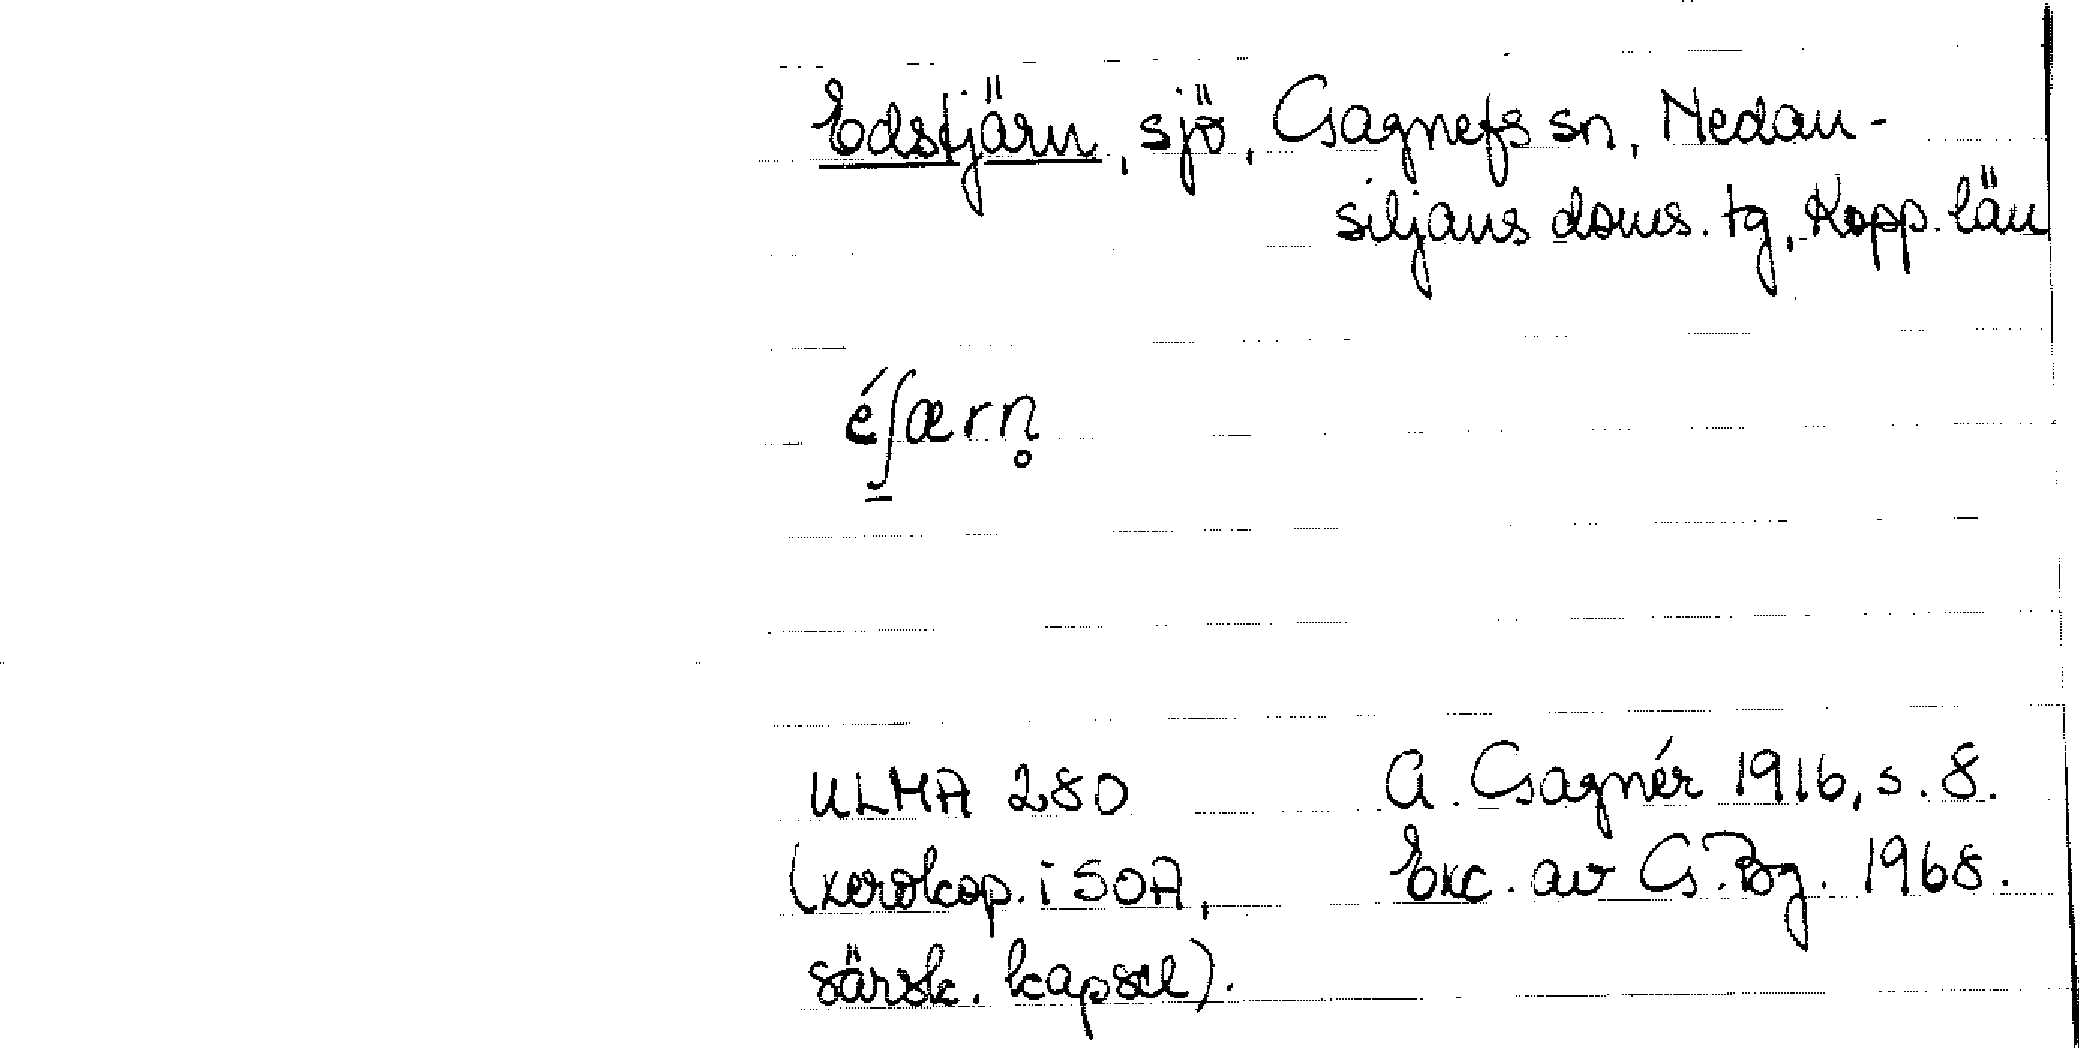 Edstjärn, sjö, Gagnefs sn, Nedan-
siljans doms. tg, Kopp. län
é∫ærn̥
ULMA 280
(xerokop. i SOA,
särsk. kapsel).
A. Gagnér 1916, s. 8.
Exc. av G. Bg. 1968.